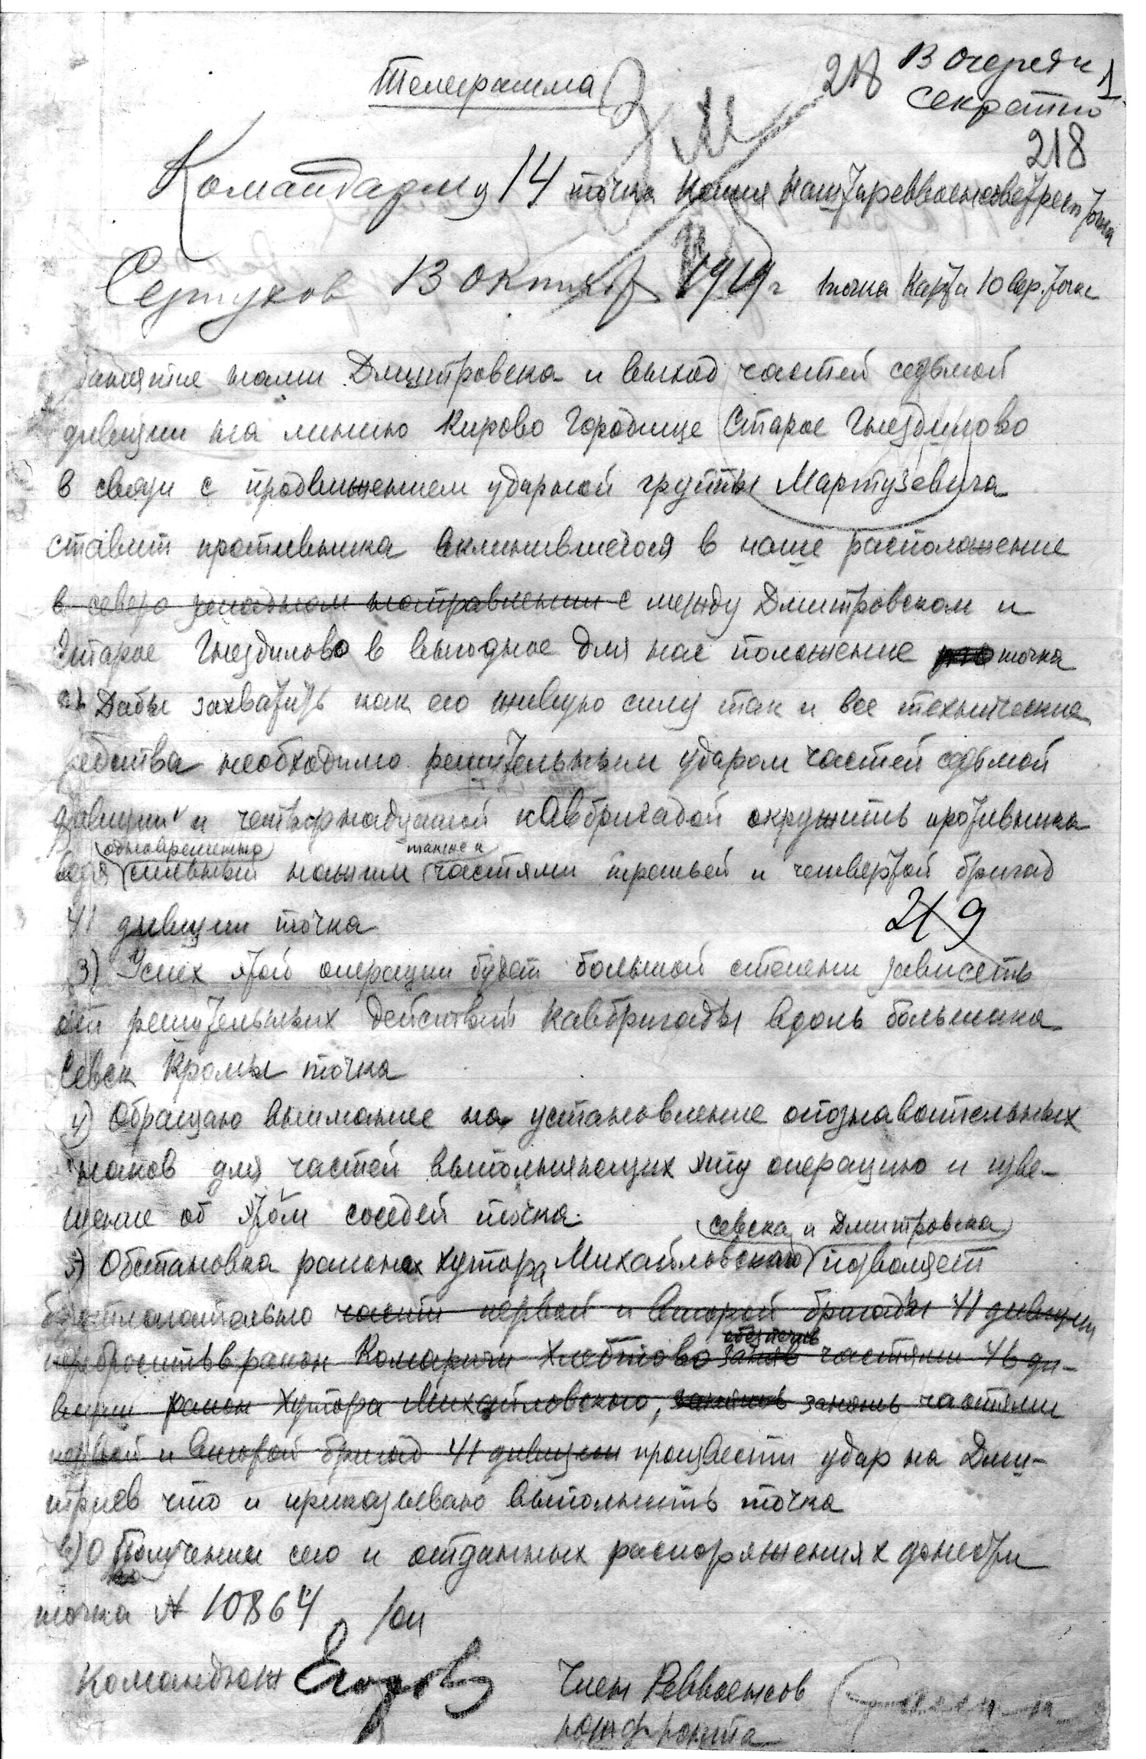 Телеграмма
218
В очередь
1
Секретно
218
Командарму 14 точка Копия Наштареввоенсоветресп точка
Серпухов 13 октября 1919 г точка Карта 10 вер. точка
Занятие нами Дмитровска и выход частей седьмой
дивизии на линию Кирово Городище Старое Гнездилово
в связи с продвижением ударной группы Мартузевича
ставит противника вклинившегося в наше расположение
в северо западном направлении с между Дмитровском и
Старое Гнездилово в выгодное для нас положение точка
2) Дабы захватить как его живую силу так и все технические
средства необходимо решительным ударом частей седьмой
дивизии и четвернадцатой кавбригадой окружить противника
одновременно также и
сильный нажим частями третьей и четвертой бригад
41 дивизии точка
219
3) Успех этой операции будет большой степени зависеть
от решительных действий кавбригады вдоль большака
Севск Кромы точка
4) Обращаю внимание на установление опознавательных
знаков для частей выполняющих эту операцию и изве-
щение об этом соседей точка
севска и Дмитровска
5) Обстановка района хутора Михайловского позволяет
безотлагательно части первой и второй бригады 41 дивизии
перебросить в район Комаричи Хлебтово заняв частями 46 ди-
обеспечив
визии район Хутора Михайловского, занять частями
первой и второй бригад 41 дивизии произвести удар на Дми-
триев что и приказываю выполнить точка
6) О получении сего и отданных распоряжениях донести
точка № 10864 /оп
Командюж Егоров
Член Реввоенсов
южфронта